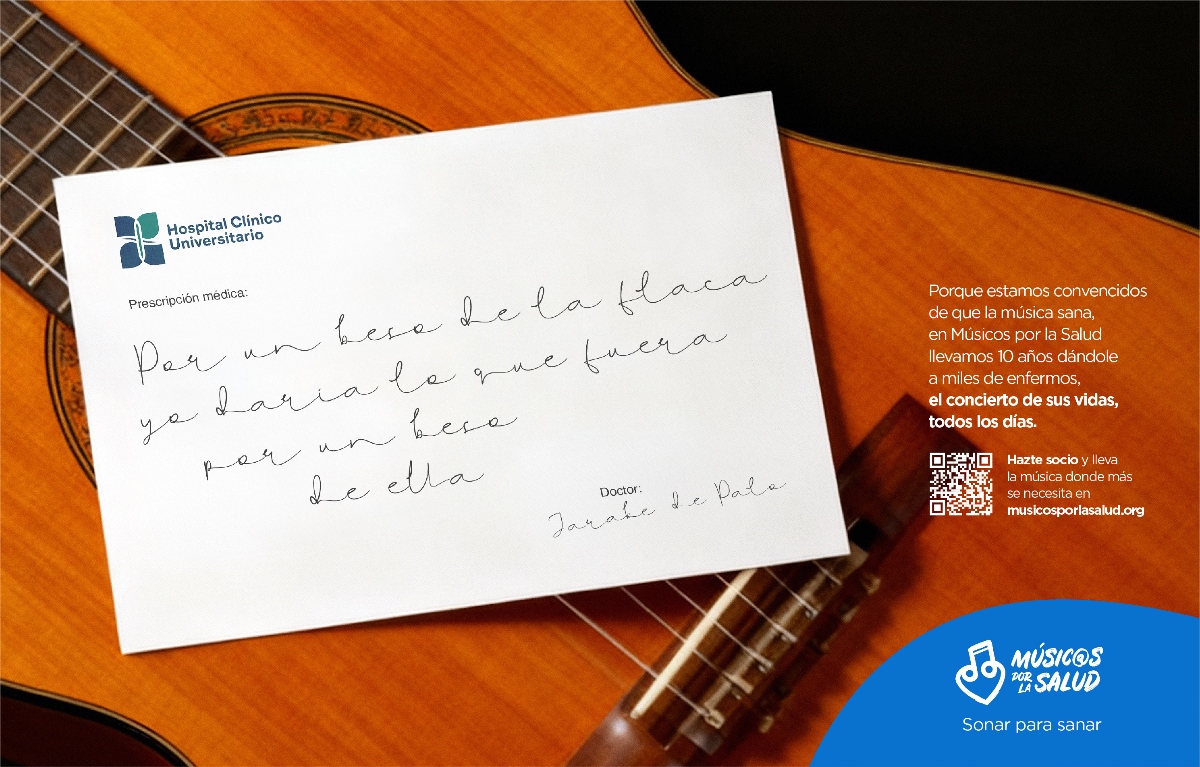 Hospital Clínico
Universitario
Prescripción médica:
Por un beso de la flaca
yo daria lo que fuera
por un beso
de ella
Doctor:
Jarabe de Palo
Porque estamos convencidos
de que la música sana,
en Músicos por la Salud
llevamos 10 años dándole
a miles de enfermos,
el concierto de sus vidas,
todos los días.
Hazte socio y lleva
la música donde más
se necesita en
musicosporlasalud.org
MÚSIC@S
POR
LA SALUD
Sonar para sanar